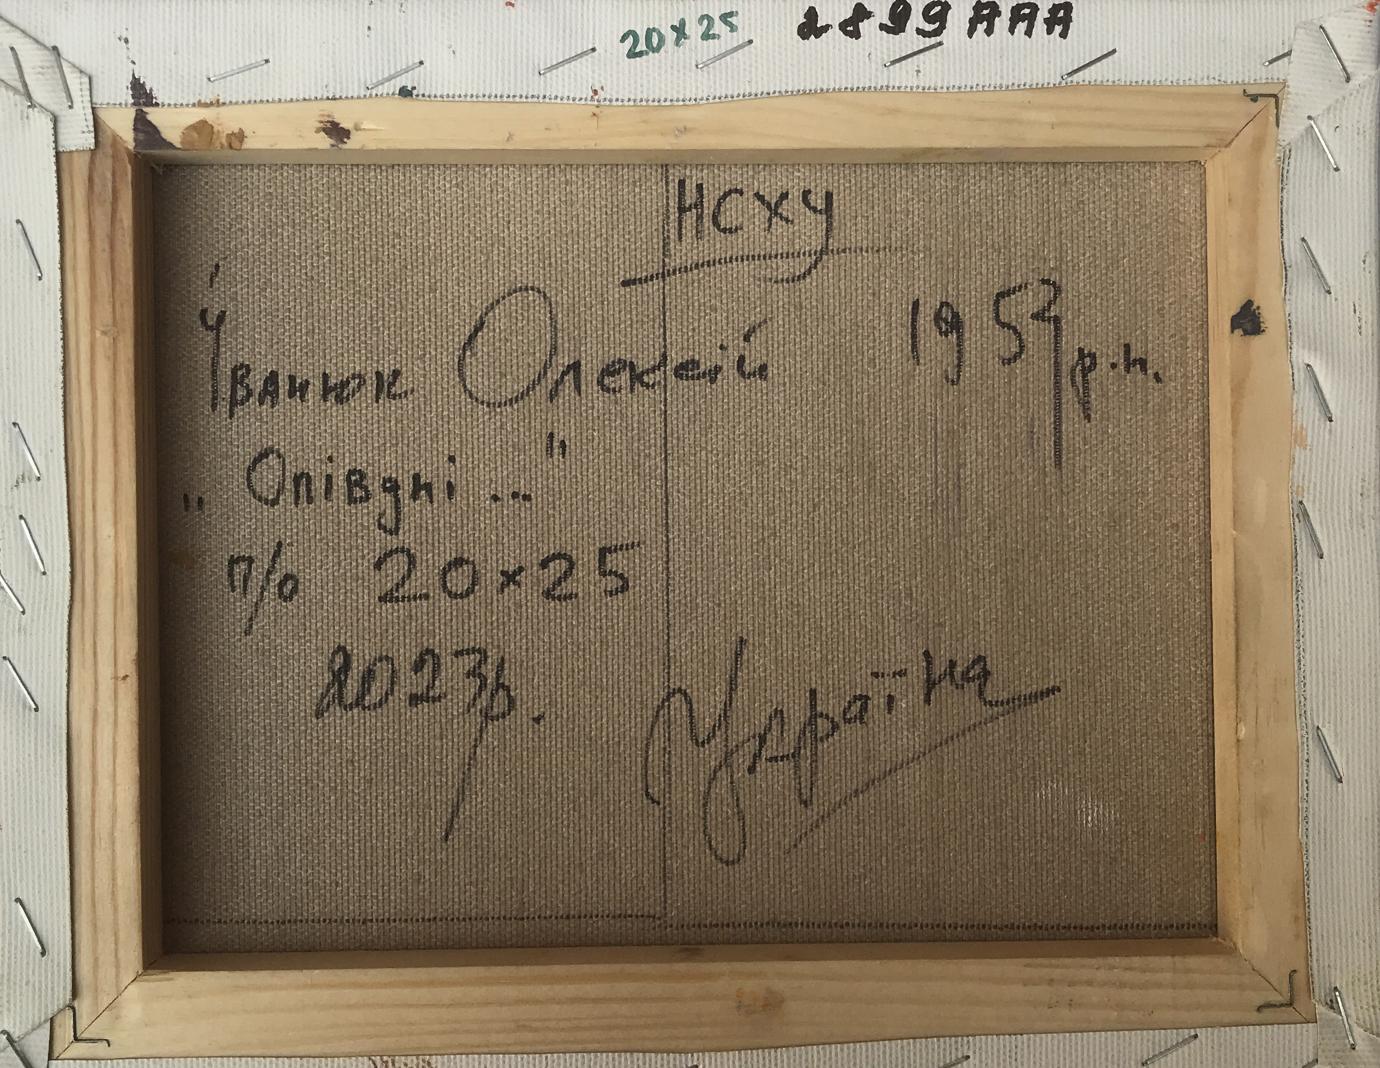 20×25 2899AAA
НСХУ
Іванюк Олексій 1953 р.н.
„Опівдні..."
п/о 20×25
2023р.
Україна